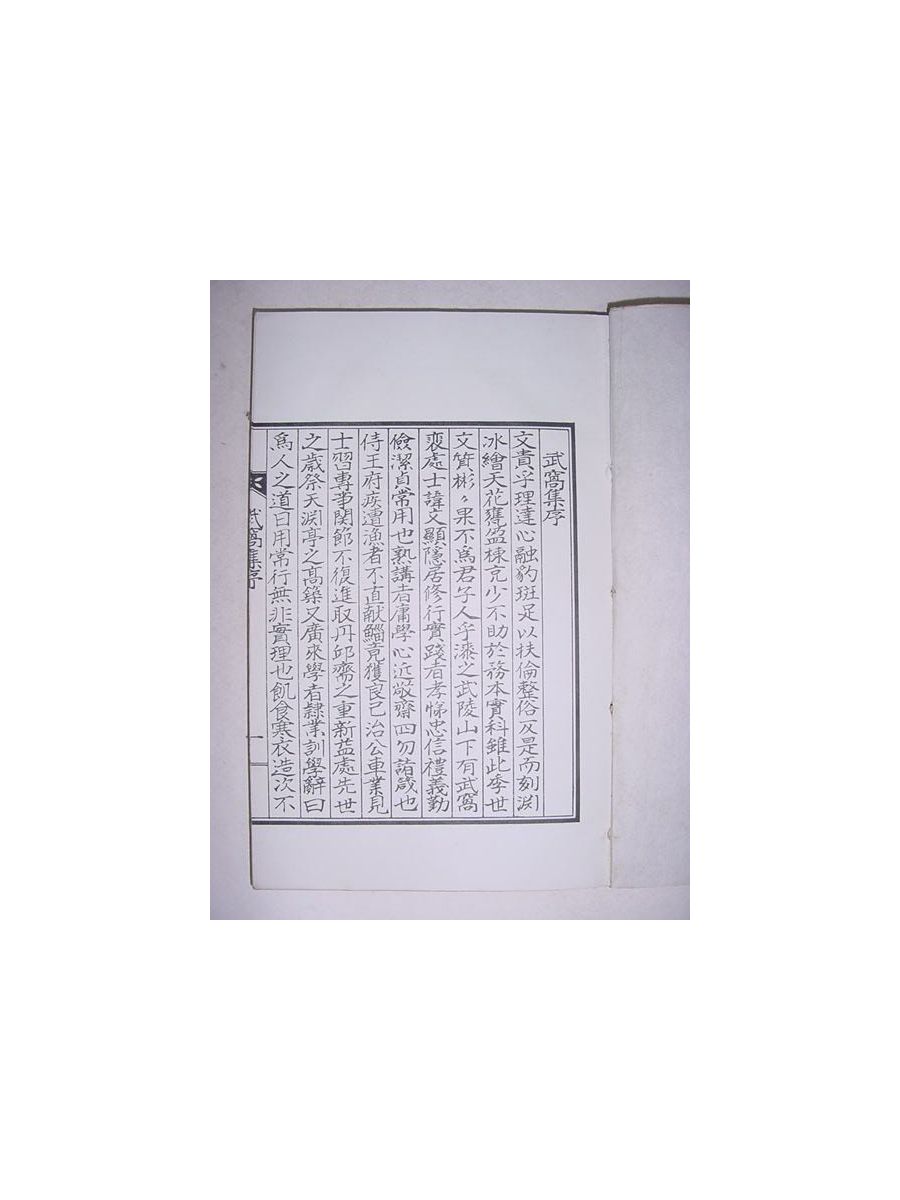 武窩集序
文貴乎理達心融豹斑足以扶倫整俗反是而刻渊
冰繪天花甕盎棟充少不助於務本實科雖此季世
文質彬々果不爲君子人乎漆之武陵山下有武窩
裵處士諱文顯隱居修行實踐者孝悌忠信禮義勤
儉潔貞常用也熟講者庸學心近敬齋四勿諸箴也
侍王府疾遭漁者不直献鯔竟獲良已治公車業見
士習專事関節不復進取丹邱齋之重新益處先世
之歳祭天渊亭之高築又廣來學者隷業訓學辭曰
爲人之道日用常行無非實理也飢食寒衣造次不
武窩集序
一